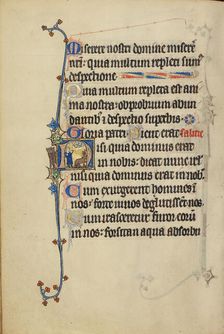 Miserere nostri domine misere
nri: quia multum repleti sum
despectione
Quia multum repleta est an
ima nostra: obprobrium abun
dantib; despectio superbis
Gloria patri Sicut erat
isi quia dominus erat
in nobis: dicat nunc isrl
nisi quia dominus erat in nob
Cum exurgerent homines i
nos: forte uiuos deglutissent nos
Cum irasceretur furor eorū
in nos: forsitan aqua absorbu